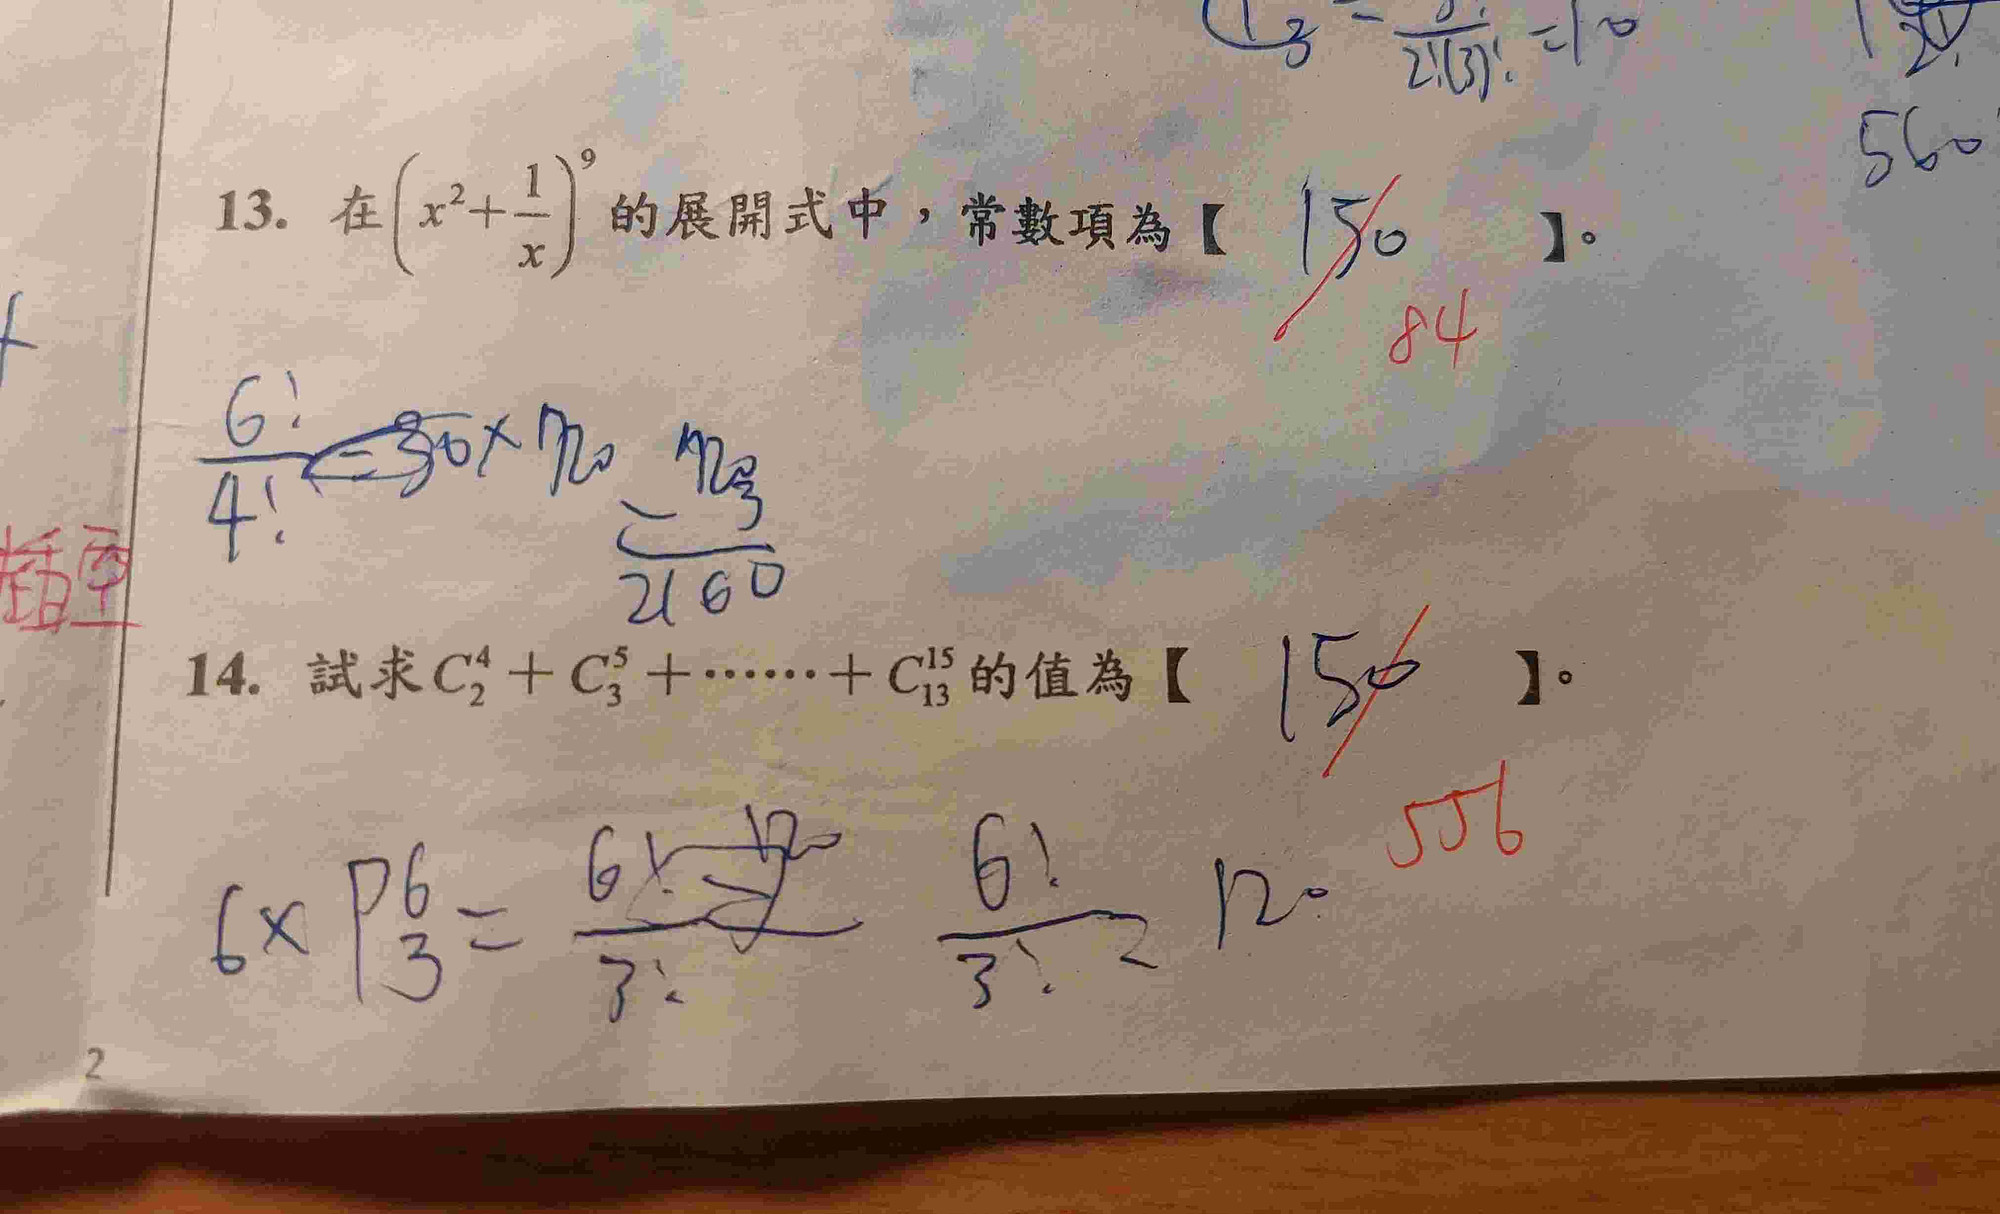 = 2!(3)! = 10
560
13. 在(x²+1/x)⁹的展開式中，常數項為【 150 】。
84
6!/4! = 30 × 720 = 720 3/2160
插空
14. 試求C⁴₂+C⁵₃+⋯⋯+C¹⁵₁₃的值為【 150 】。
556
6×P⁶₃= 6!/3! 120 6!/3! 120
2